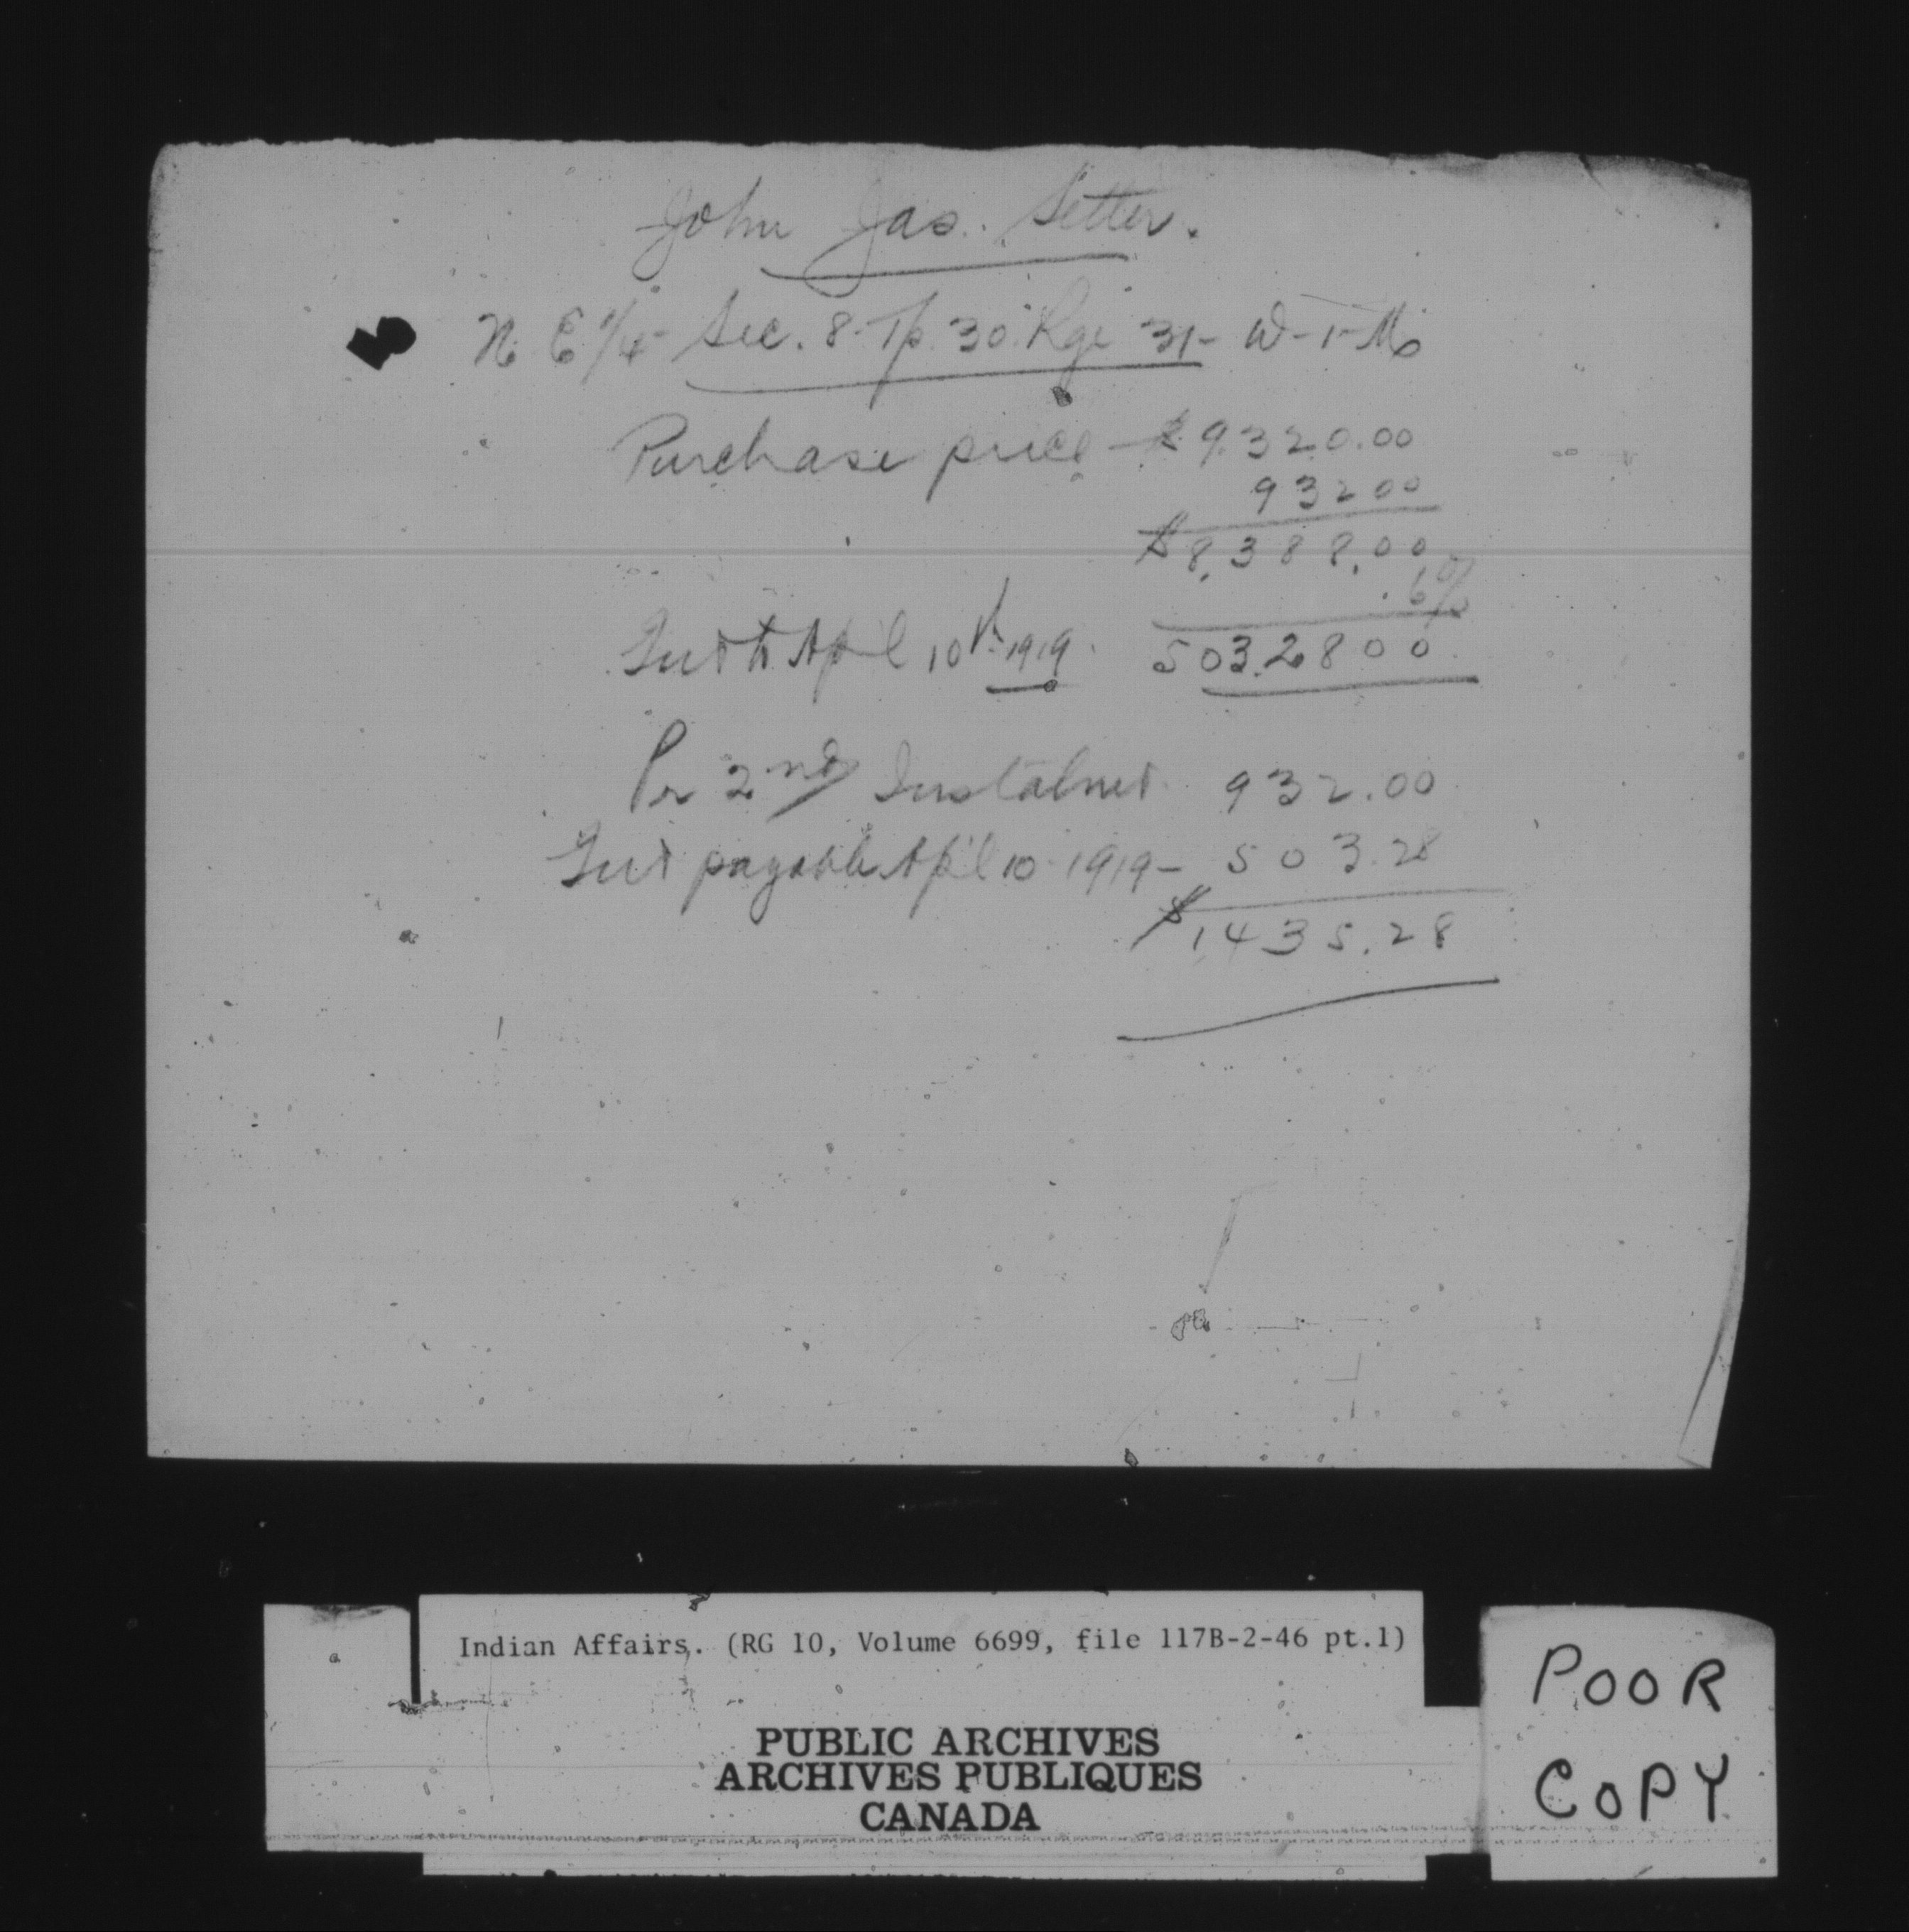 John Jas. Setter.
N. E 1/4 Sec. 8. Tp. 30. Rge 31- W-1-M
Purchase price - $9,320.00
932 00
$8,388.00
.6%
Int to Apl 10th 1919. 503.2800
Pr 2nd Instalmt. 932.00
Int payable Apl 10 1919 - 503.28
$1,435.28
Indian Affairs. (RG 10, Volume 6699, file 117B-2-46 pt.1)
PUBLIC ARCHIVES
ARCHIVES PUBLIQUES
CANADA
POOR
COPY